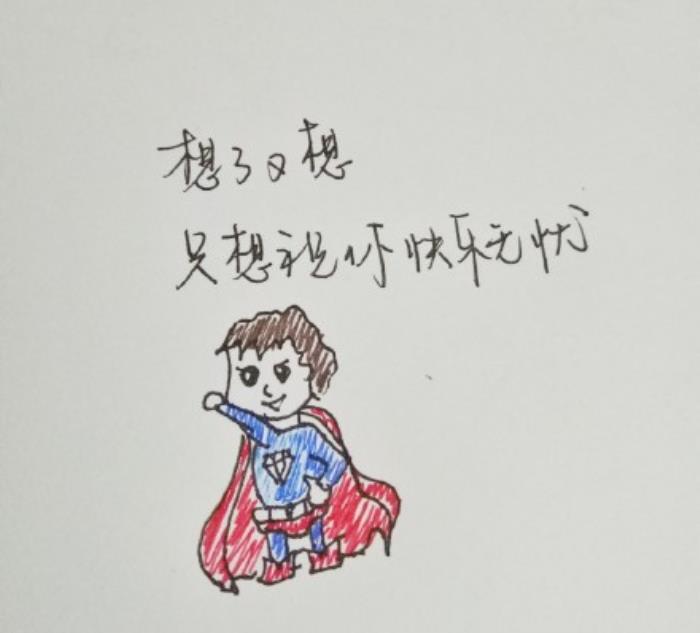 想了又想
只想祝你快乐无忧